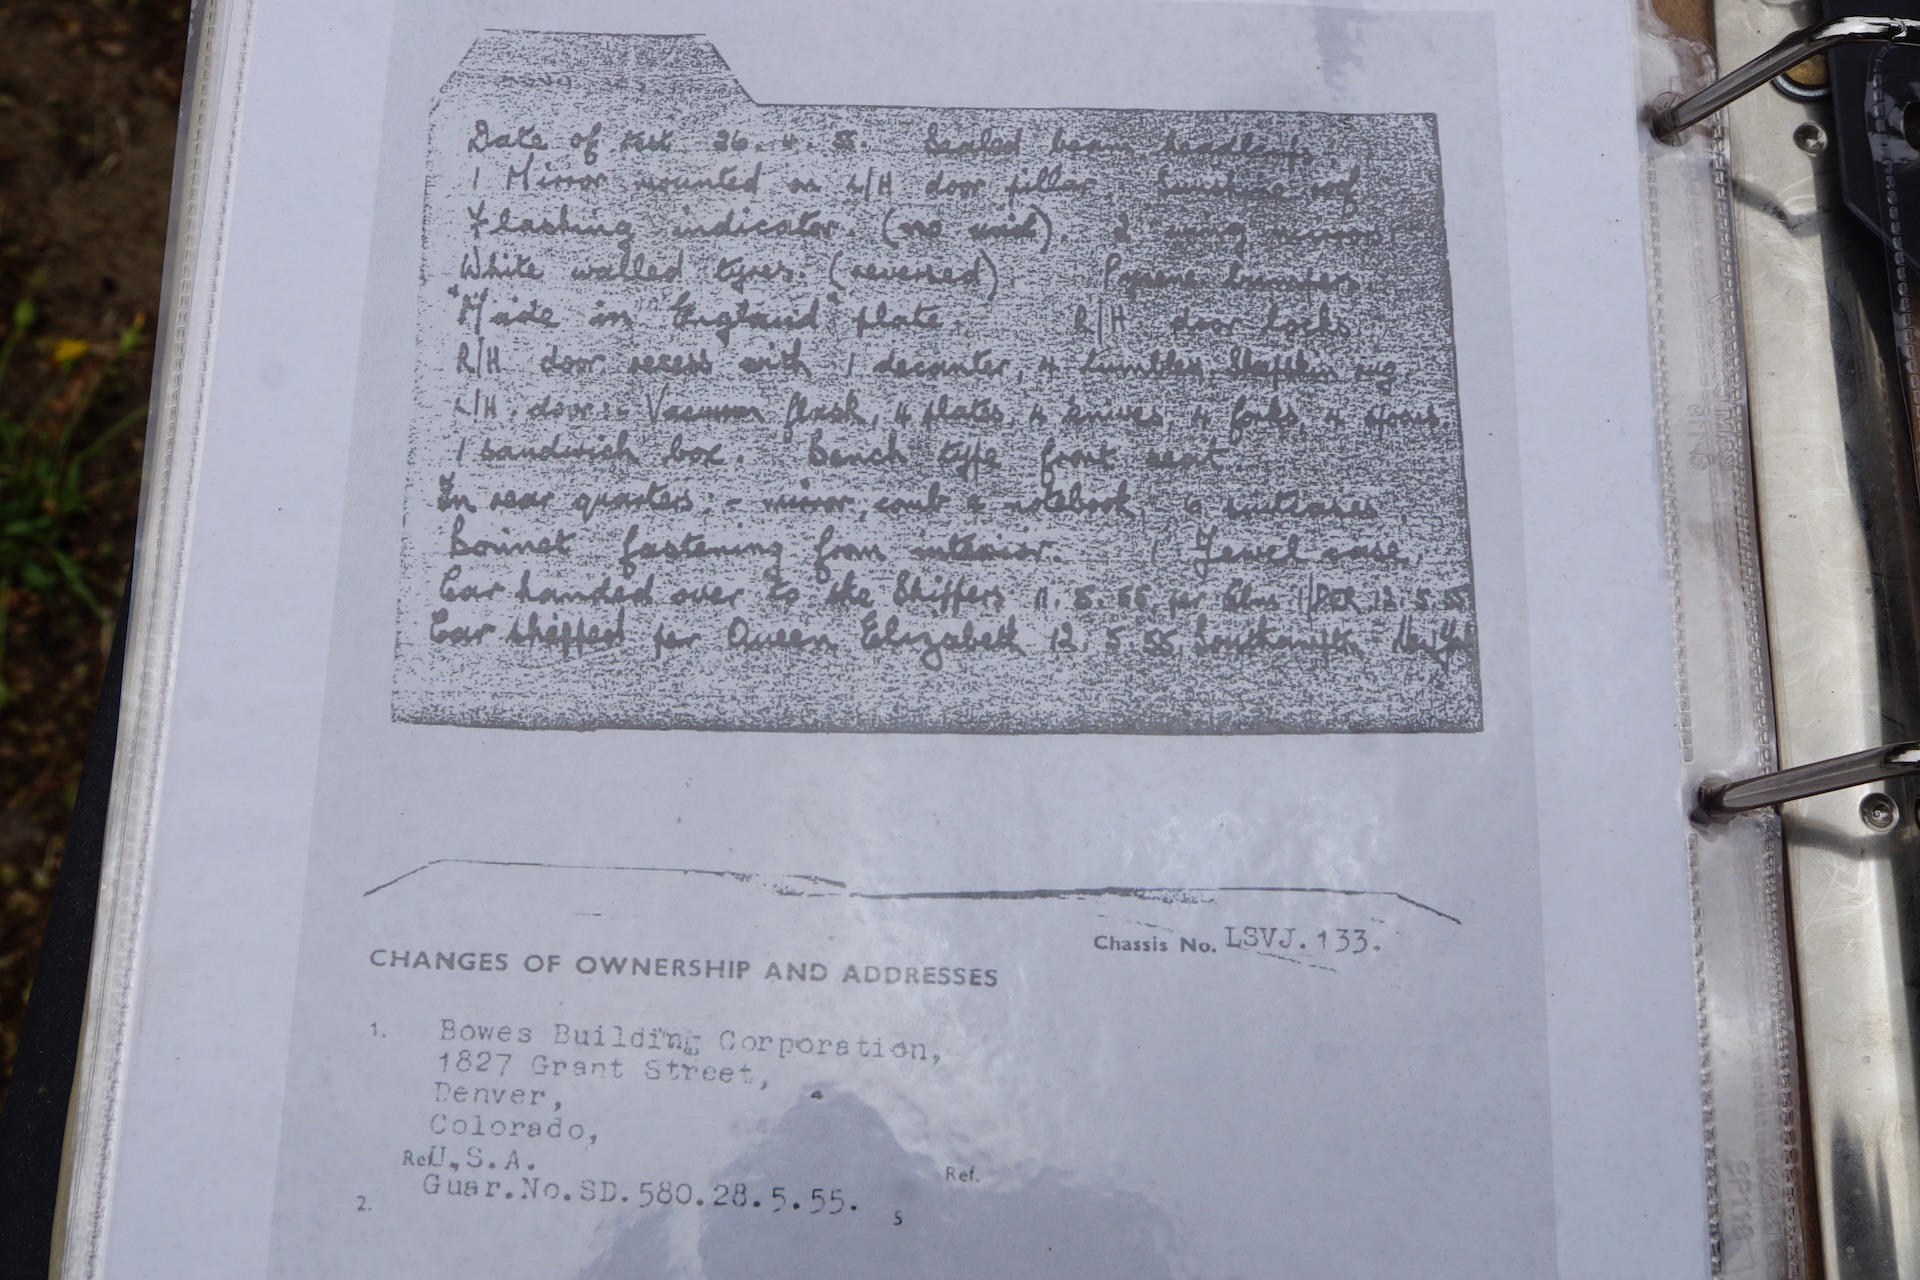 Date of test 26.4.55. Sealed beam headlamps.
1 Mirror mounted on L/H door pillar. Sunshine roof
Flashing indicator. (no unit). 2 wing mirrors
White walled tyres. (reversed) bumpers
"Made in England" plate. R/H door locks
R/H door recess with 1 decanter, 4 tumblers, rug
L/H. door:- Vacuum flask, 4 plates, 4 knives, 4 forks, 4 spoons,
1 sandwich box. Bench type front seat.
In rear quarters:- mirror, comb & notebook 6 suitcases,
Bonnet fastening from interior. 1 Jewel case,
Car handed over to the Shippers 11.5.55. per 12.5.55
Car shipped per Queen Elizabeth 12.5.55 Southampton New York
Chassis No. LSVJ.133.
CHANGES OF OWNERSHIP AND ADDRESSES
1. Bowes Building Corporation,
1827 Grant Street,
Denver,
Colorado,
Ref. U.S.A. Ref.
Guar.No.SD.580.28.5.55.
2. 5